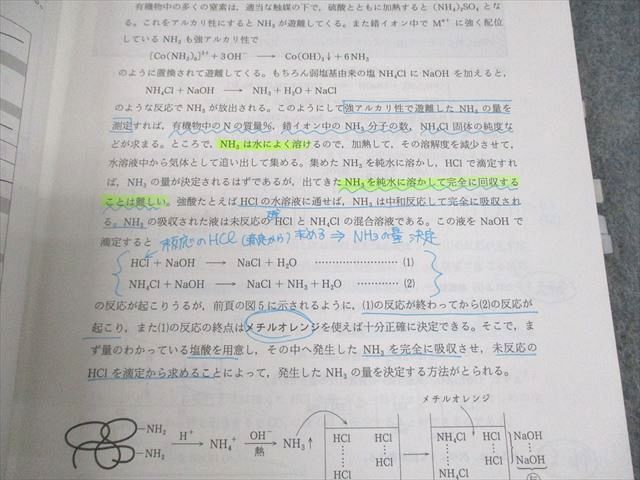 有機物中の多くの窒素は，適当な触媒の下で，硫酸とともに加熱すると (NH₄)₂SO₄ とな
る。これをアルカリ性にすると NH₃ が遊離してくる。また錯イオン中で Mⁿ⁺ に強く配位
している NH₃ も強アルカリ性で
[Co(NH₃)₆]³⁺＋3OH⁻ ⟶ Co(OH)₃↓＋6NH₃
のように置換されて遊離してくる。もちろん弱塩基由来の塩 NH₄Cl に NaOH を加えると，
NH₄Cl＋NaOH ⟶ NH₃＋H₂O＋NaCl
のような反応で NH₃ が放出される。このようにして強アルカリ性で遊離した NH₃ の量を
測定すれば，有機物中の N の質量%，錯イオン中の NH₃ 分子の数，NH₄Cl 固体の純度な
どが求まる。ところで，NH₃ は水によく溶けるので，加熱して，その溶解度を減少させて，
水溶液中から気体として追い出して集める。集めた NH₃ を純水に溶かし，HCl で滴定すれ
ば，NH₃ の量が決定されるはずであるが，出てきた NH₃ を純水に溶かして完全に回収する
ことは難しい。強酸たとえば HCl の水溶液に通せば，NH₃ は中和反応して完全に吸収され
る。NH₃ の吸収された液は未反応の HCl と NH₄Cl の混合溶液である。この液を NaOH で
滴定すると
HCl＋NaOH ⟶ NaCl＋H₂O ⋯⋯⋯⋯⋯ (1)
NH₄Cl＋NaOH ⟶ NaCl＋NH₃＋H₂O ⋯⋯⋯⋯⋯ (2)
の反応が起こりうるが，前頁の図 5 に示されるように，(1)の反応が終わってから(2)の反応が
起こり，また(1)の反応の終点はメチルオレンジを使えば十分正確に決定できる。そこで，ま
ず量のわかっている塩酸を用意し，その中へ発生した NH₃ を完全に吸収させ，未反応の
HCl を滴定から求めることによって，発生した NH₃ の量を決定する方法がとられる。
メチルオレンジ
NH₂
NH₂
H⁺
NH₄⁺
OH⁻
熱
NH₃↑
HCl HCl
HCl HCl
NH₄Cl HCl
NH₄Cl
NaOH
NaOH